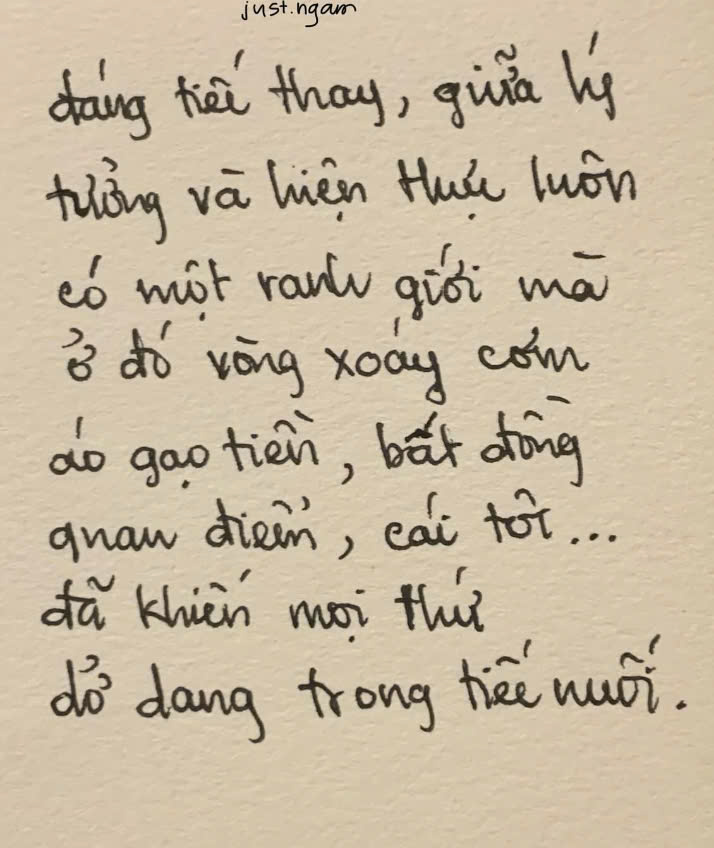 just.ngam
đáng tiếc thay, giữa lý
tưởng và hiện thực luôn
có một ranh giới mà
ở đó vòng xoáy cơm
áo gạo tiền, bất đồng
quan điểm, cái tôi...
đã khiến mọi thứ
dở dang trong tiếc nuối.